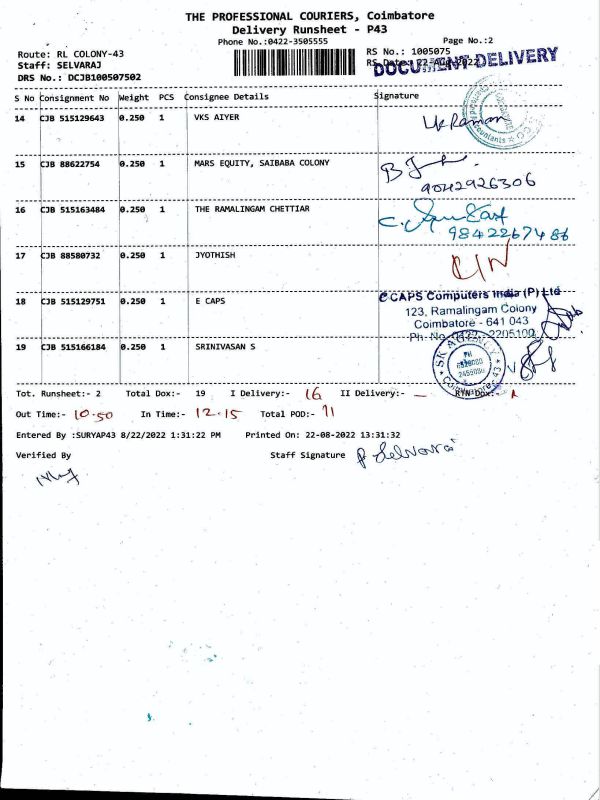 THE PROFESSIONAL COURIERS, Coimbatore
Delivery Runsheet - P43
Phone No.:0422-3505555
Page No.:2
Route: RL COLONY-43
RS No.: 1005075
Staff: SELVARAJ
RS Date: 22-Aug-2022
DOCUMENT DELIVERY
DRS No.: DCJB100507502
S No Consignment No Weight PCS Consignee Details Signature
14 CJB 515129643 0.250 1 VKS AIYER
15 CJB 88622754 0.250 1 MARS EQUITY, SAIBABA COLONY
9042926306
16 CJB 515163484 0.250 1 THE RAMALINGAM CHETTIAR
9842267486
17 CJB 88580732 0.250 1 JYOTHISH
C/N
18 CJB 515129751 0.250 1 E CAPS
e CAPS Computers India (P) Ltd
123, Ramalingam Colony
Coimbatore - 641 043
Ph: No. 0422 - 2205100
19 CJB 515166184 0.250 1 SRINIVASAN S
SK AGENCY
Coimbatore - 43
Tot. Runsheet:- 2 Total Dox:- 19 I Delivery:- 16 II Delivery:- — RTN Dox:-
Out Time:- 10.50 In Time:- 12.15 Total POD:- 11
Entered By :SURYAP43 8/22/2022 1:31:22 PM Printed On: 22-08-2022 13:31:32
Verified By Staff Signature P Selvaraj